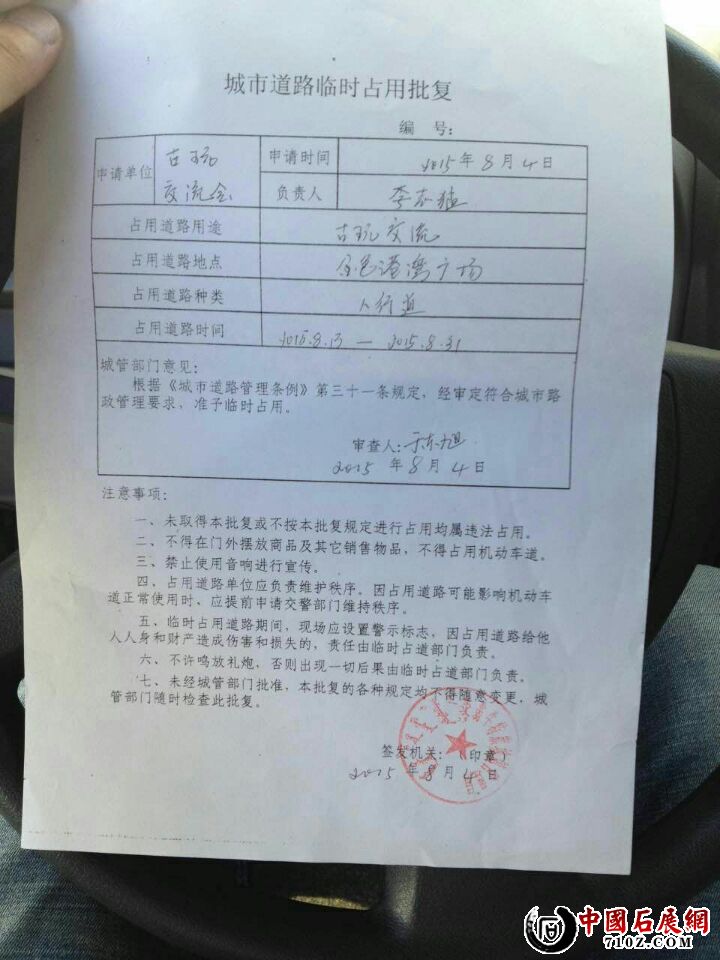 城市道路临时占用批复
编 号：
申请单位 古玩交流会 申请时间 2015年8月4日
负责人
占用道路用途 古玩交流
占用道路地点 金色港湾广场
占用道路种类 人行道
占用道路时间 2015.8.13 — 2015.8.31
城管部门意见：
根据《城市道路管理条例》第三十一条规定，经审定符合城市路
政管理要求，准予临时占用。
审查人：于东旭
2015 年 8 月 4 日
注意事项：
一、未取得本批复或不按本批复规定进行占用均属违法占用。
二、不得在门外摆放商品及其它销售物品，不得占用机动车道。
三、禁止使用音响进行宣传。
四、占用道路单位应负责维护秩序。因占用道路可能影响机动车
道正常使用时、应提前申请交警部门维持秩序。
五、临时占用道路期间，现场应设置警示标志，因占用道路给他
人人身和财产造成伤害和损失的，责任由临时占道部门负责。
六、不许鸣放礼炮，否则出现一切后果由临时占道部门负责。
七、未经城管部门批准，本批复的各种规定均不得随意变更，城
管部门随时检查此批复。
签发机关：（印章）
2015 年 8 月 4 日
中國石展網
7102.COM